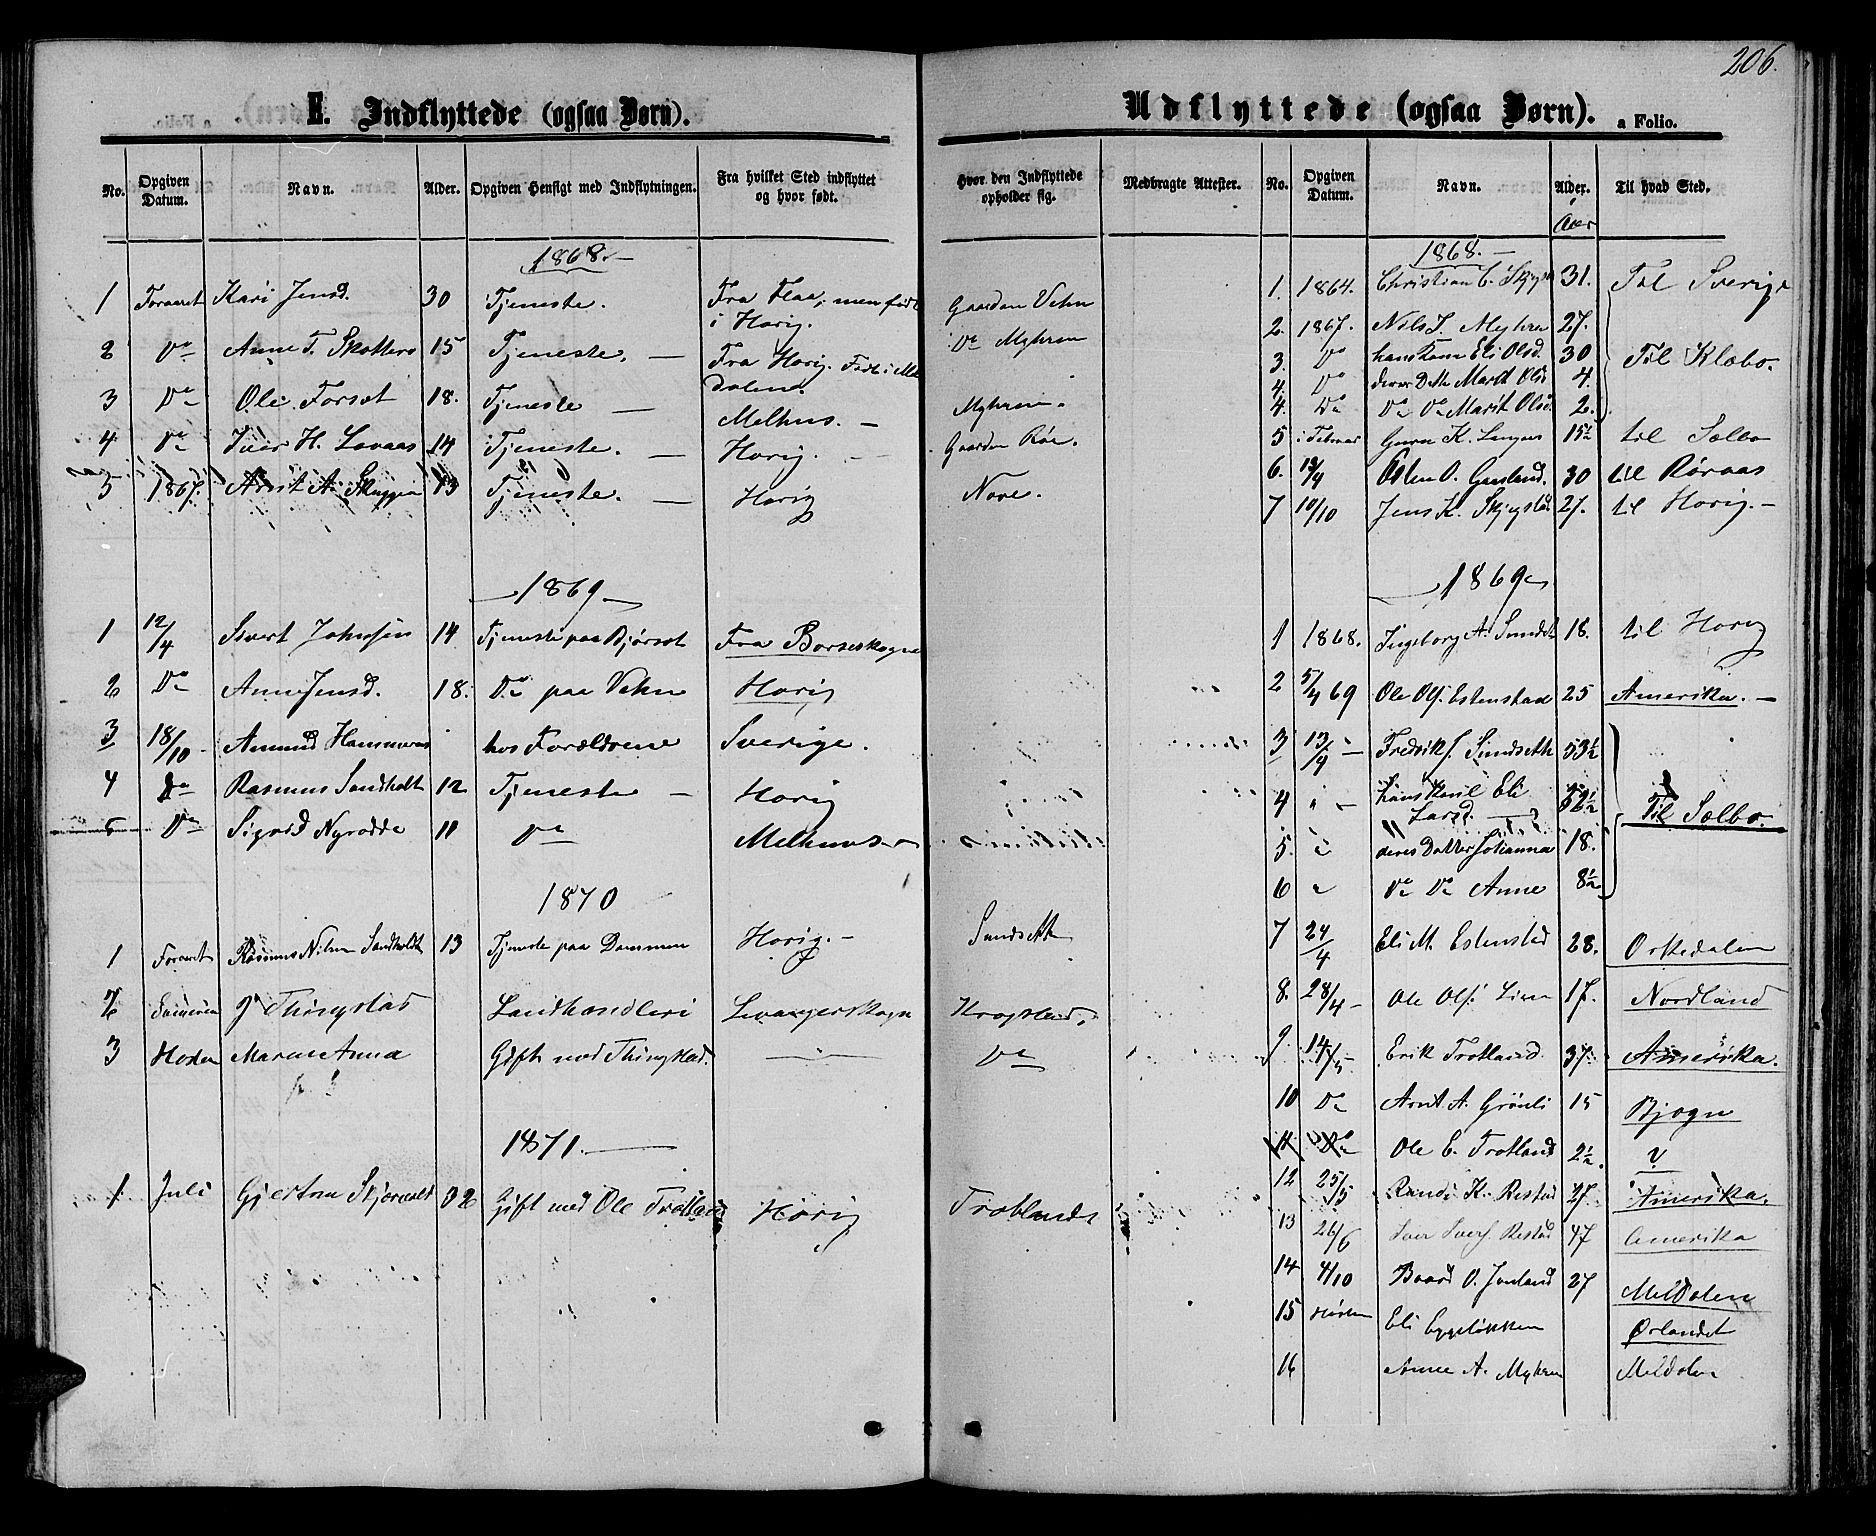 206.
E. Indflyttede (ogsaa Børn).
No. Opgiven Datum. Navn. Alder. Opgiven Hensigt med Indflytningen. Fra hvilket Sted indflyttet og hvor født. Hvor den Indflyttede opholder sig. Medbragte Attester.
1868.
1 Foraaret Kari Jensd. 30 Tjeneste. Fra Flaa, men født i Horig. Gaarden Vehn
2 Do Anne T. 15 Tjeneste. Fra Horig. Født i Meldalen. Do Myhren
3 Do Ole Forset 18. Tjeneste Melhus. Myhren.
4 Do Iver H. Lovaas 14 Tjeneste. Horig. Gaarden Røe.
5 1867. Arnt A. 13 Tjeneste. Horig Nove.
1869
1 12/4 Sivert Johnsen 14 Tjeneste paa Bjørset Fra Børseskogn
2 Do Anne Jensd. 18. Do paa Vehn Horig
3 18/10 Amund hos Forældrene Sverige.
4 Do Rasmus Sandholt 12 Tjeneste Horig
5 Do Sigrid Nyrødde 11 Do Melhus
1870
1 Foraaret Rasmus Nilsen Sandholdt 13 Tjeneste paa Dammen Horig. Sundseth
2 J Thingstad Landhandleri Levangerskogn Krogstad.
3 Maren Anna Gift med Thingstad. Do
1871.
1 Juli Skjervold 32 Gift med Ole Trotland Horig Trotlands
Udflyttede (ogsaa Børn). a Folio.
No. Opgiven Datum. Navn. Alder. Til hvad Sted.
Aar
1868.
1. 1864. Christian C. 31. Til Sverige
2. 1867. Nils J. Myhren 27.
3. Do hans Kone Eli Olsd. 30 Til Klæbo.
4. Do deres Datter Marit Olsd 4.
4. Do Do Do Marit Olsd. 2.
5 i Februar K. 15½ til Sælbo
6. 13/4 O. 30 til Røraas
7 10/10 Jens K. 27. til Horig.
1869
1 1868. Ingeborg A. Sundset 18. til Horig
2 5/4 69 Ole Ols. Estenstad 25 Amerika.
3 13/4 Fredrik J. Sundseth 53½
4 " hans Kone Eli Larsd. Til Sælbo.
5. " deres Datter Johanna 18.
6 " Do Do Anne 8½
7 24/4 Eli M. Estenstad 28. Orkedalen
8. 28/4 Ole Ols. Lien 17. Nordland
9. 14/5 Erik Trotland. 37. Amerika.
10 Do Arnt A. Grønli 15 Bjogn
11 Do Ole E. Trotland 2½. ?
12 25/5 Randi K. Restad 27. Amerika.
13 26/6 Iver Ivers. Restad 47 Amerika
14 4/10 Baard O. 27 Meldalen
15 Høsten Eli Eggeløkken Ørlandet
16 Anne A. Myhren Meldalen